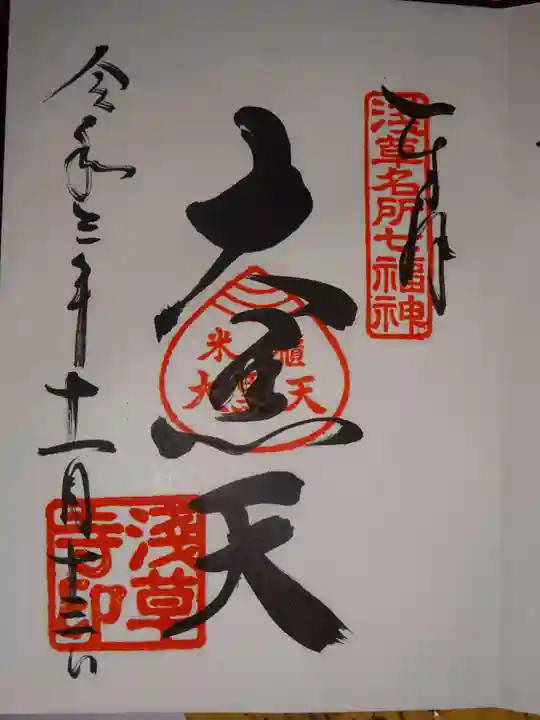 奉拝
浅草名所七福神
大黒天
米櫃
大黒天
令和三年十一月十三日
浅草
寺印